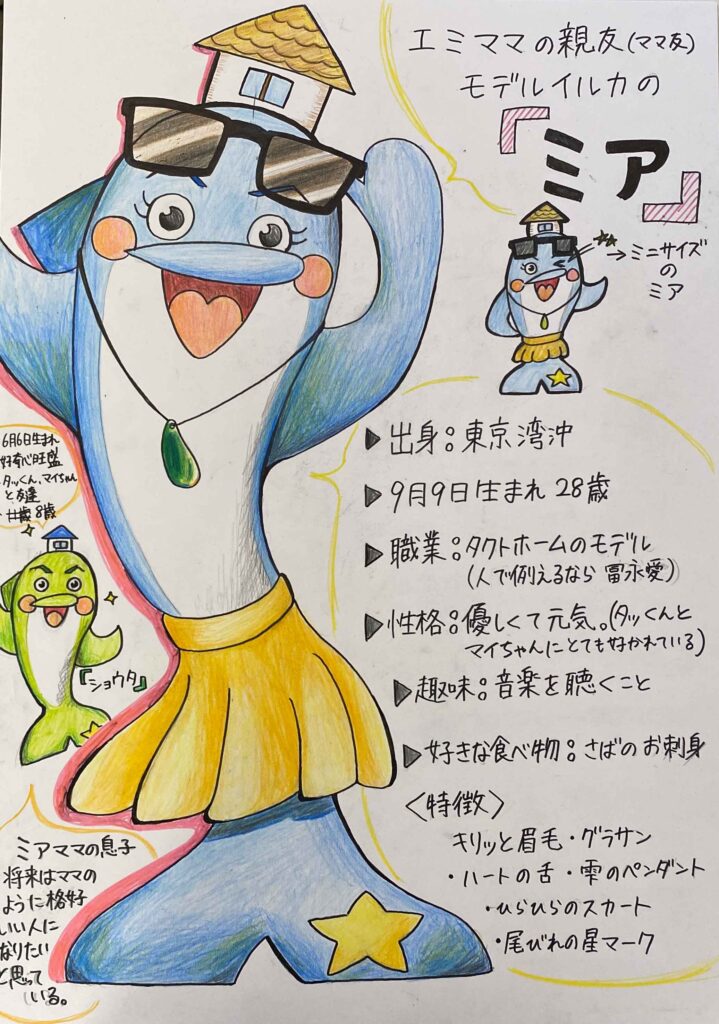 エミママの親友(ママ友)
モデルイルカの
『ミア』
→ミニサイズ
の
ミア
▶出身:東京湾沖
▶9月9日生まれ 28歳
▶職業:タクトホームのモデル
(人で例えるなら 冨永愛)
▶性格:優しくて元気。(タッくんと
マイちゃんにとても好かれている)
▶趣味:音楽を聴くこと
▶好きな食べ物:さばのお刺身
<特徴>
キリッと眉毛・グラサン
・ハートの舌・雫のペンダント
・ひらひらのスカート
・尾びれの星マーク
6月6日生まれ
好奇心旺盛
タッくん、マイちゃん
と友達
8歳
『ショウタ』
ミアママの息子
将来はママの
ように格好
いい人に
なりたい
と思って
いる。